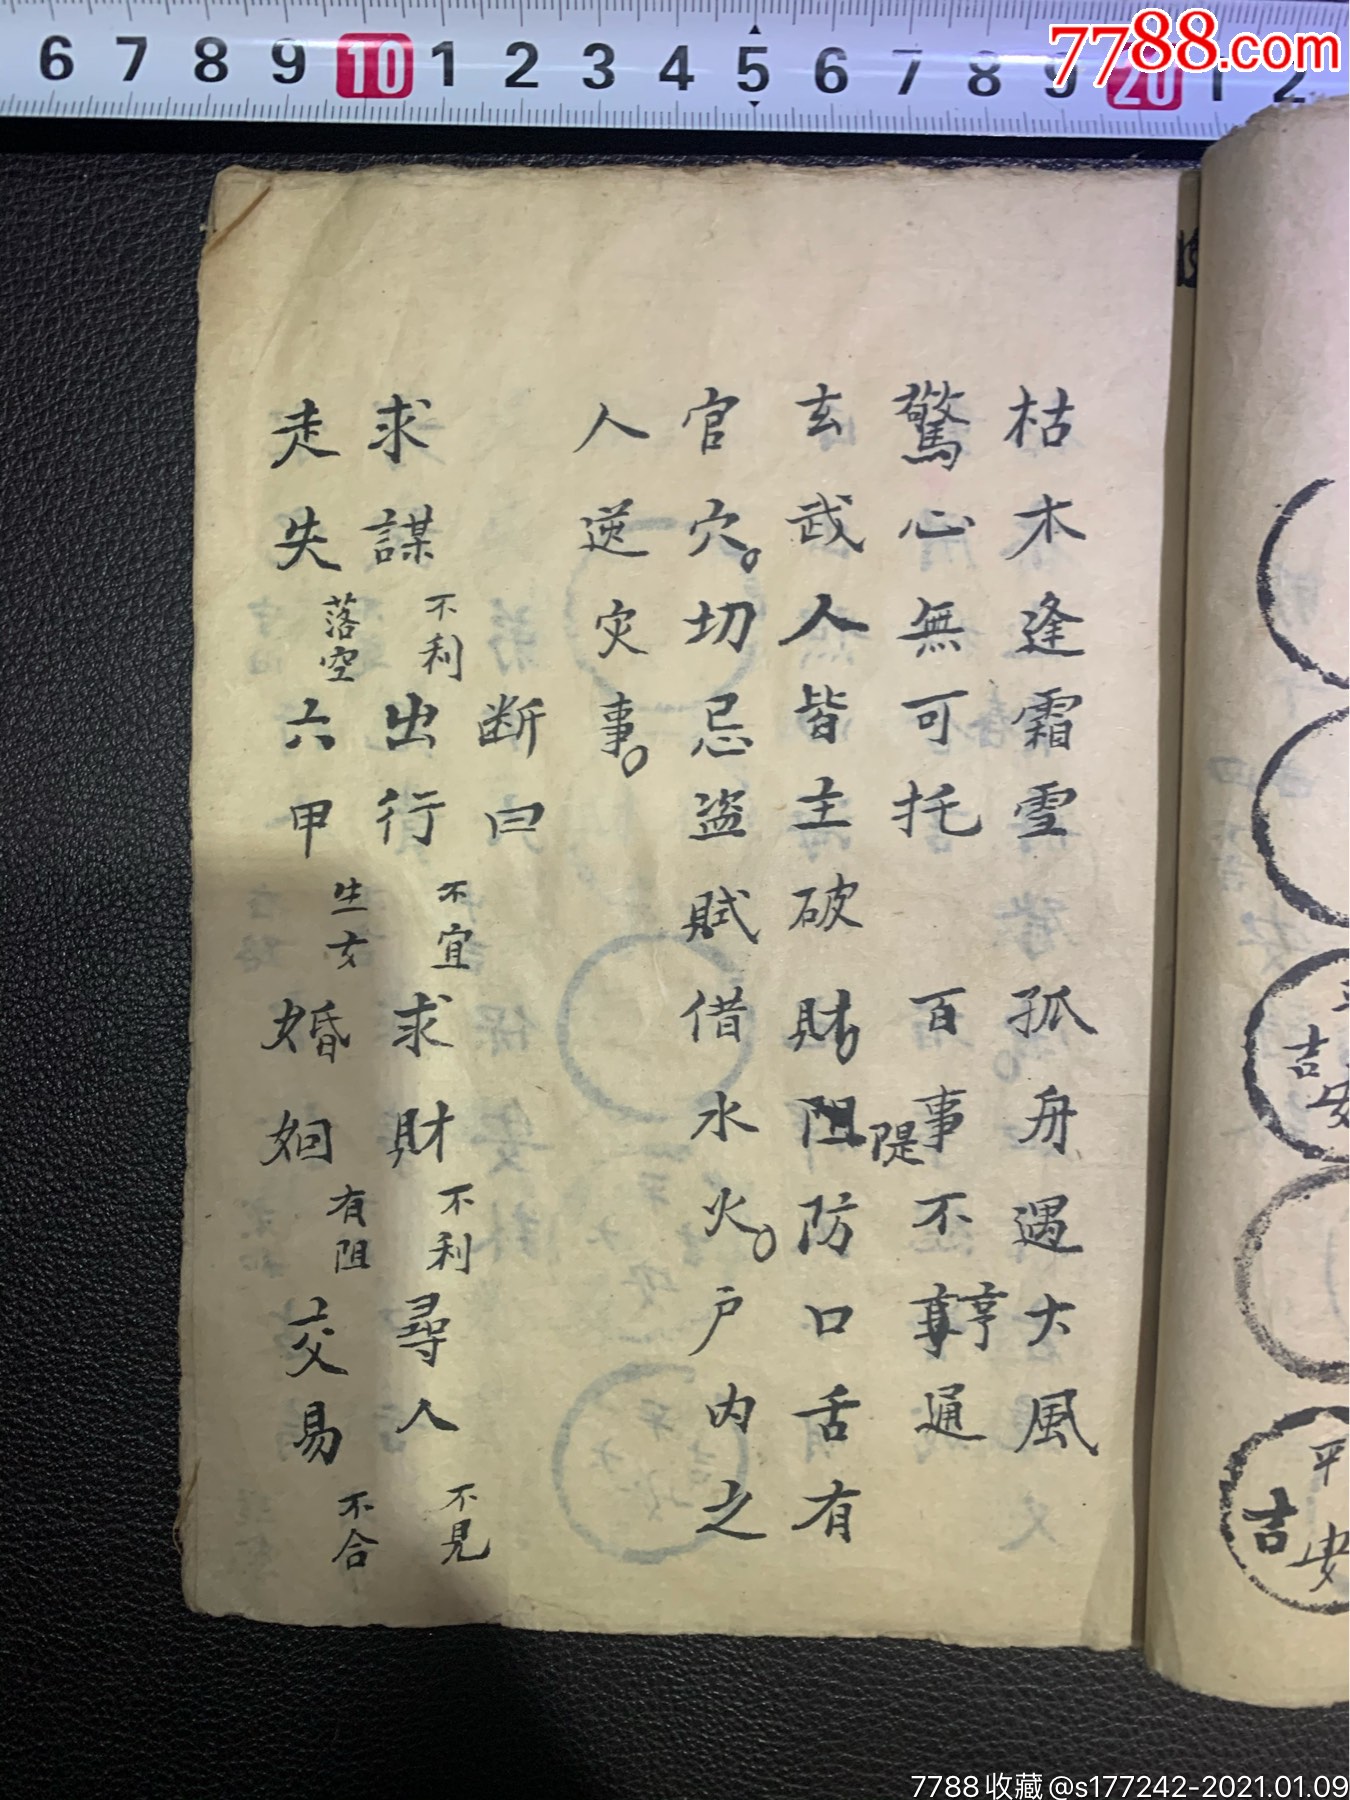 6 7 8 9 10 1 2 3 4 5 6 7 8 9 20 1 2
7788.com
枯木逢霜雪 孤舟遇大風
驚心無可托 百事不亨通
玄武人皆主破財阻隄防口舌有
官穴。切忌盜賊借水火。户内之
人逆灾事。
断曰
求謀不利 出行不宜 求財不利 尋人不見
走失落空 六甲生女 婚姻有阻 交易不合
吉安
平安吉
7788收藏@s177242-2021.01.09